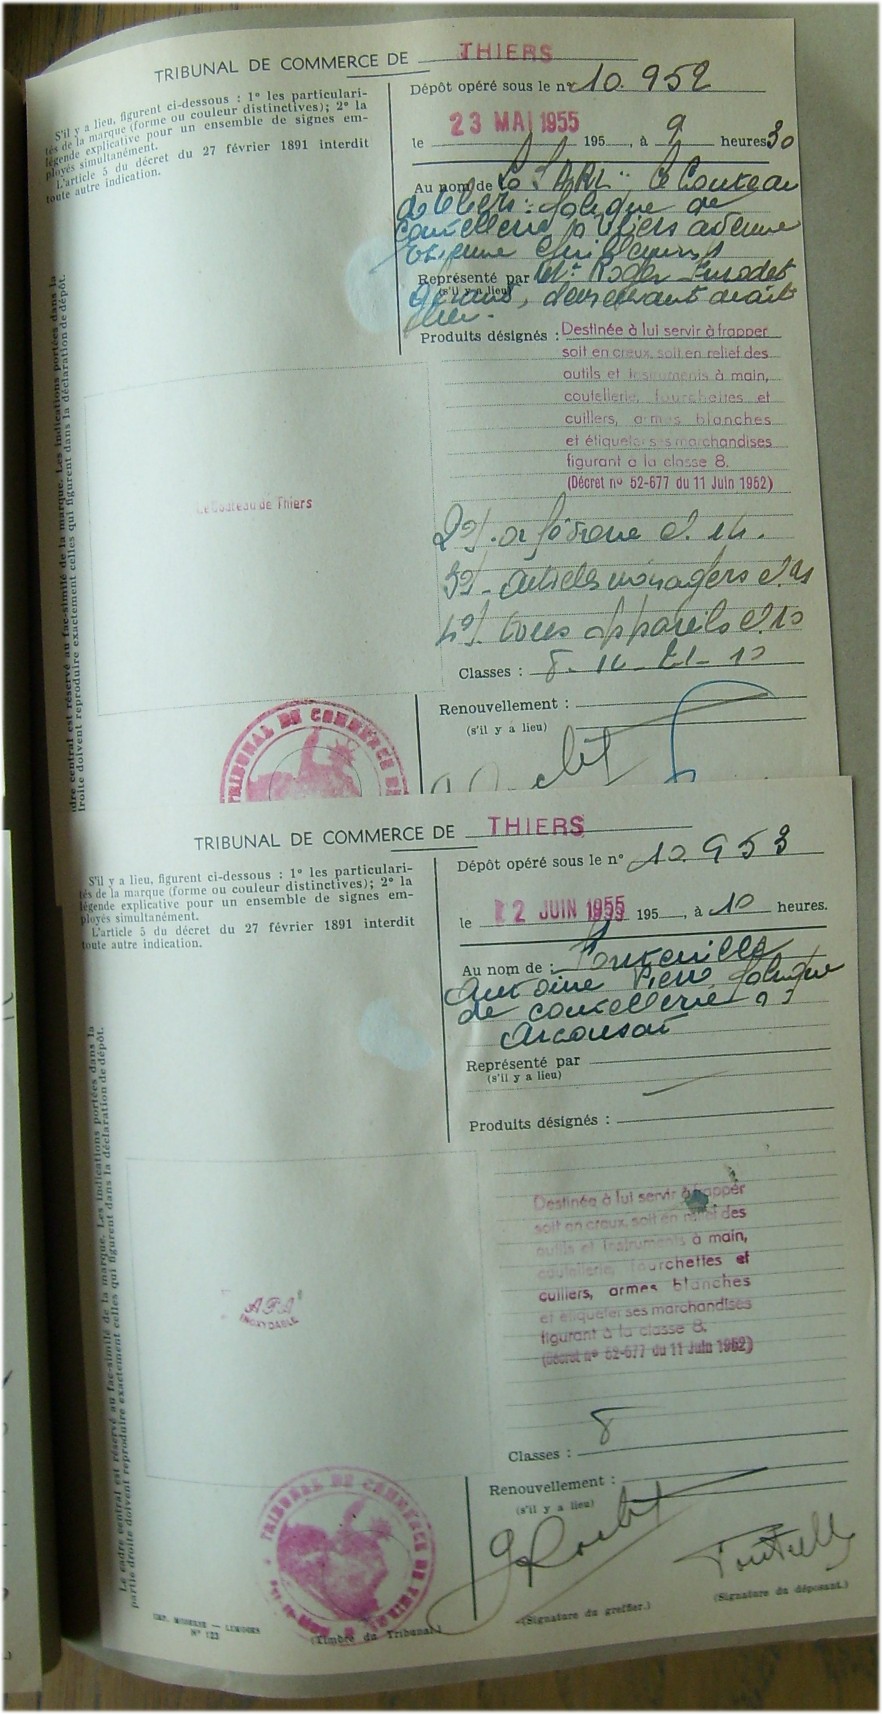 TRIBUNAL DE COMMERCE DE THIERS
S'il y a lieu, figurent ci-dessous : 1° les particulari-
tés de la marque (forme ou couleur distinctives); 2° la
légende explicative pour un ensemble de signes em-
ployés simultanément.
L'article 5 du décret du 27 février 1891 interdit
toute autre indication.
Dépôt opéré sous le n° 10.952
le 23 MAI 1955 195 , à 9 heures 30
Au nom de la SARL "Le Couteau
de Thiers" fabrique de
coutellerie à Thiers avenue
Etienne Guillaume
Représenté par Mr Roger
(s'il y a lieu)
Gérant, demeurant
Produits désignés : Destinée à lui servir à frapper
soit en creux, soit en relief des
outils et instruments à main,
coutellerie, fourchettes et
cuillers, armes blanches
et étiqueter ses marchandises
figurant à la classe 8.
(Décret n° 52-677 du 11 Juin 1952)
Le Couteau de Thiers
2°/. orfèvrerie cl. 14.
3°/- articles ménagers cl. 21
4°/. tous appareils cl. 10
Classes : 8 - 14 - 21 - 10
Renouvellement :
(s'il y a lieu)
TRIBUNAL DE COMMERCE DE
dre central est réservé au fac-similé de la marque. Les indications portées dans la
droite doivent reproduire exactement celles qui figurent dans la déclaration de dépôt.
TRIBUNAL DE COMMERCE DE THIERS
S'il y a lieu, figurent ci-dessous : 1° les particulari-
tés de la marque (forme ou couleur distinctives); 2° la
légende explicative pour un ensemble de signes em-
ployés simultanément.
L'article 5 du décret du 27 février 1891 interdit
toute autre indication.
Dépôt opéré sous le n° 10.953
le 2 JUIN 1955 195 , à 10 heures.
Au nom de : Fontenille
Antoine Pierre fabrique
de coutellerie à
Arconsat
Représenté par
(s'il y a lieu)
Produits désignés :
Destinée à lui servir à frapper
soit en creux, soit en relief des
outils et instruments à main,
coutellerie, fourchettes et
cuillers, armes blanches
et étiqueter ses marchandises
figurant à la classe 8.
(Décret n° 52-677 du 11 Juin 1952)
INOXYDABLE
Classes : 8
Renouvellement :
(s'il y a lieu)
TRIBUNAL DE COMMERCE DE THIERS
Le cadre central est réservé au fac-similé de la marque. Les indications portées dans la
partie droite doivent reproduire exactement celles qui figurent dans la déclaration de dépôt.
IMP. MODERNE — LIMOGES
N° 123
(Timbre du Tribunal.)
(Signature du greffier.)
(Signature du déposant.)